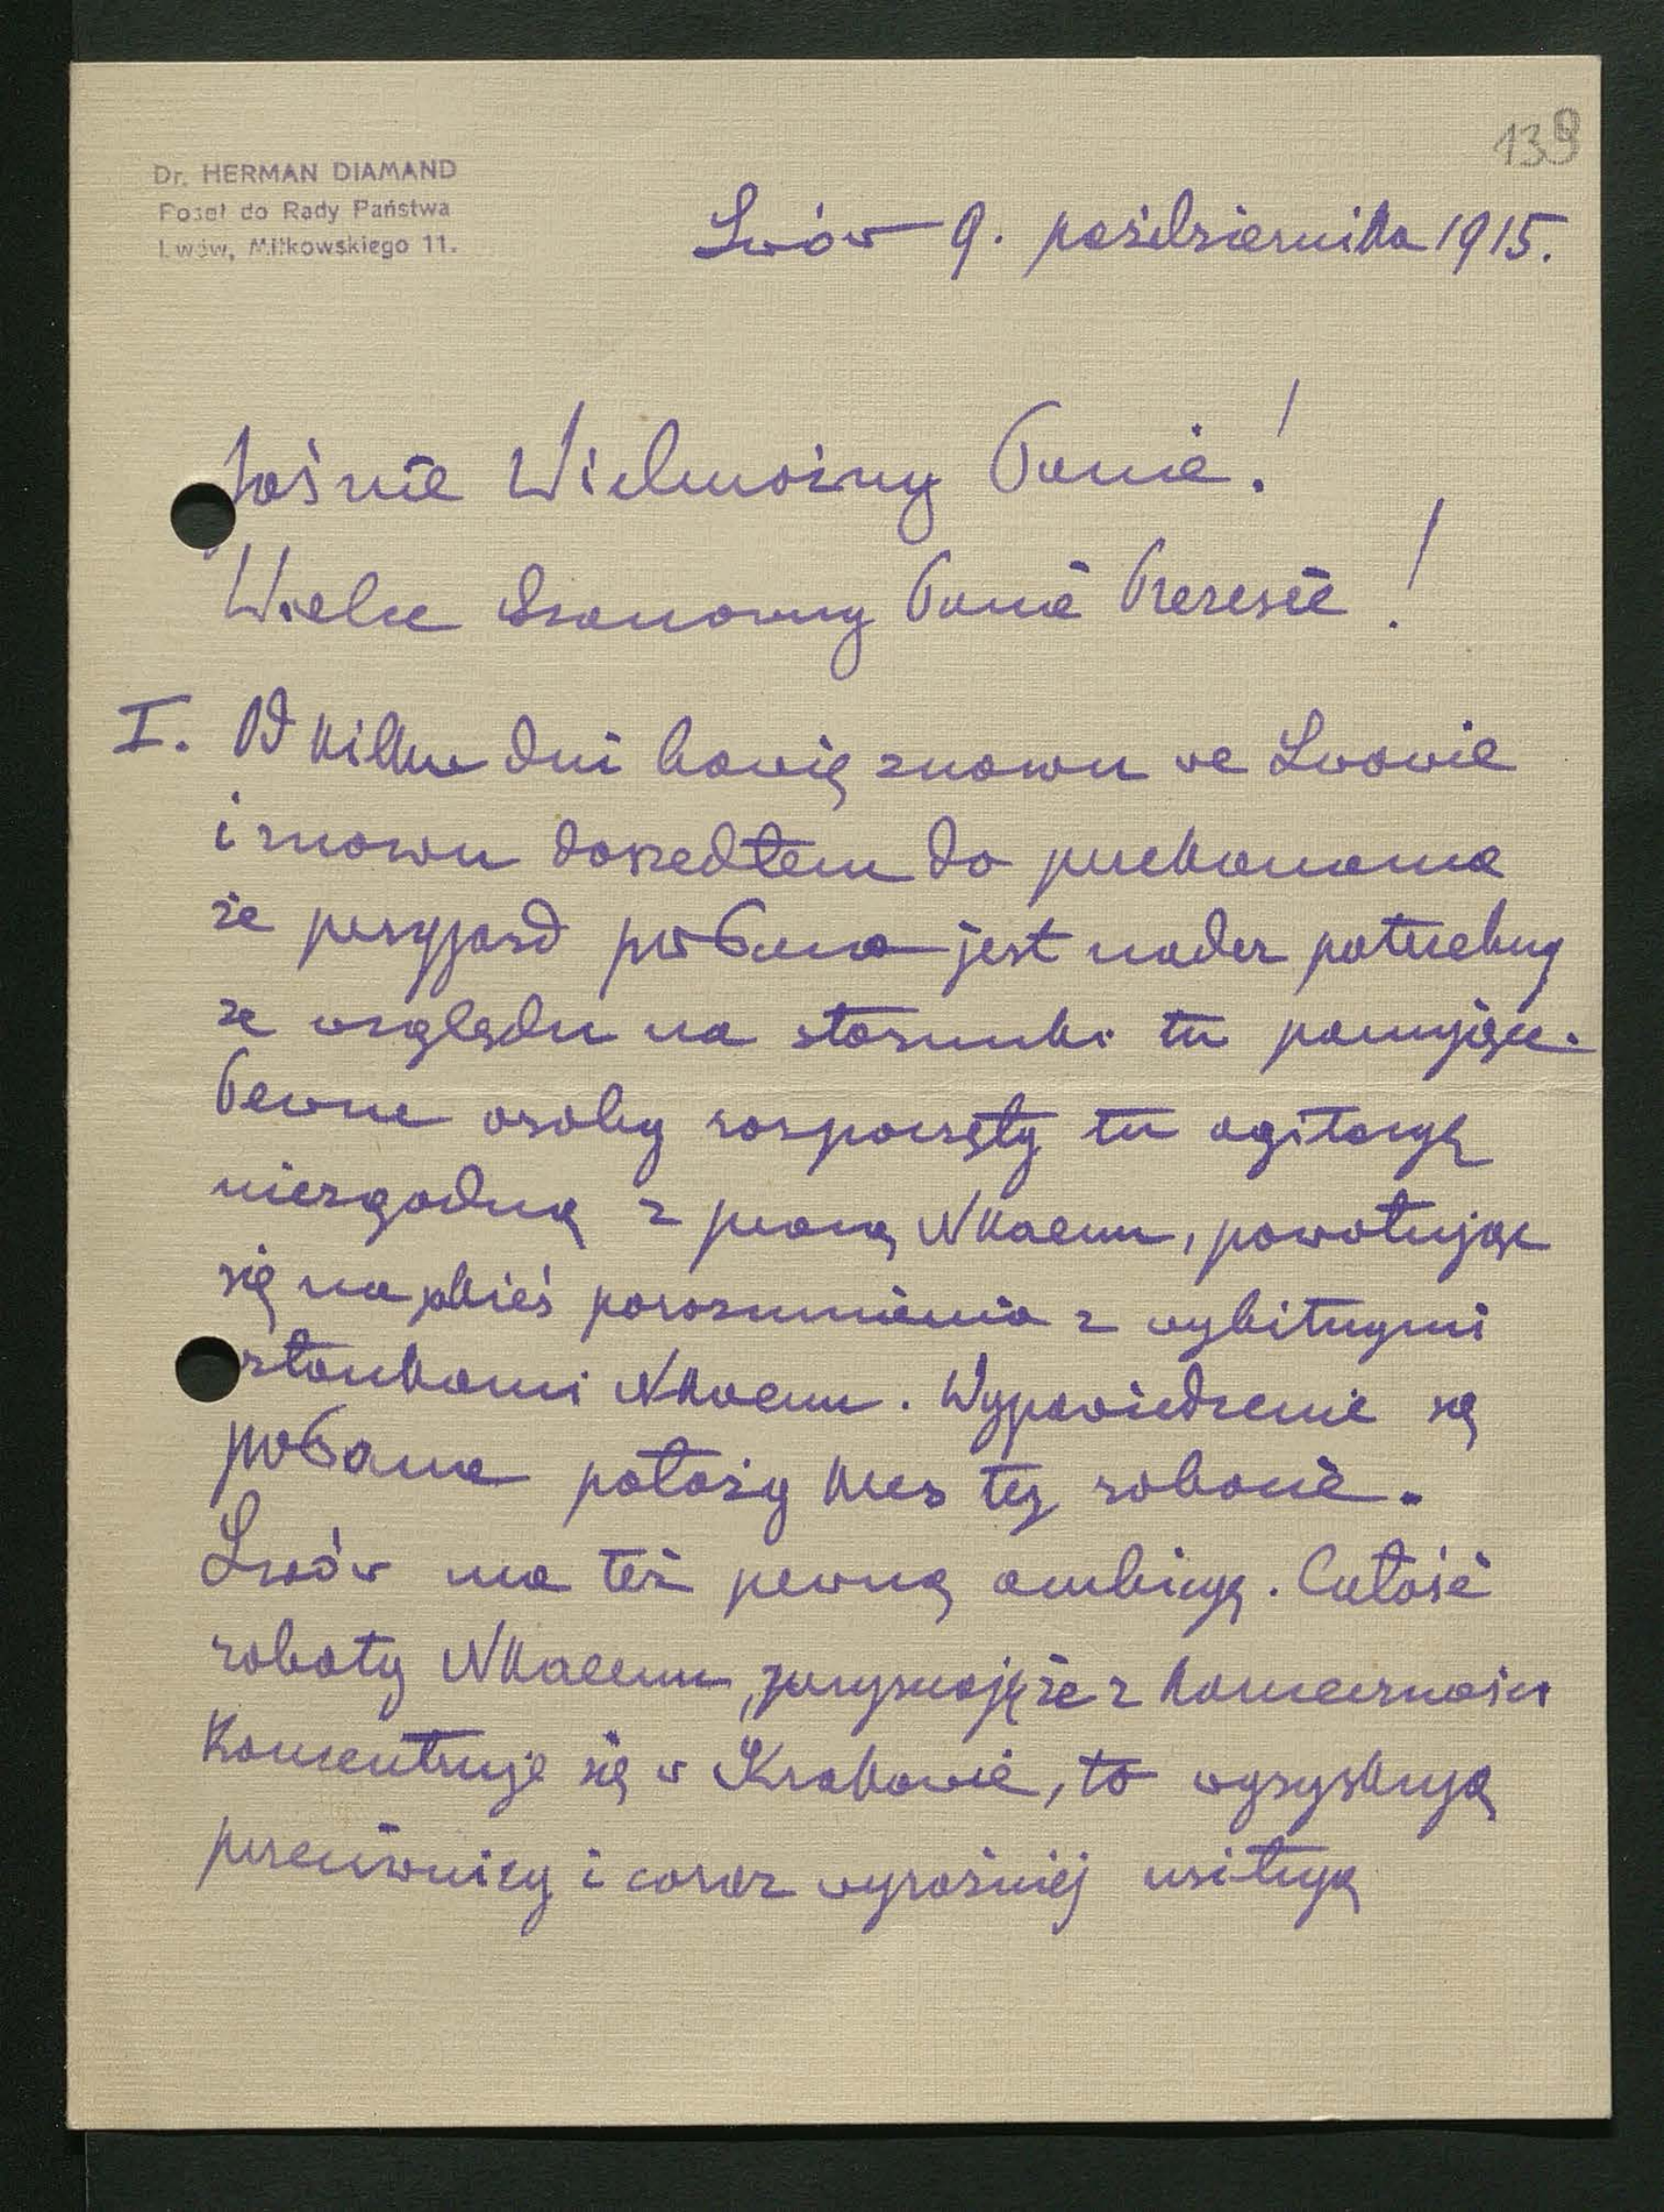 139
Dr. HERMAN DIAMAND
Poseł do Rady Państwa
Lwów, Miłkowskiego 11.
Lwów 9. października 1915.
Jaśnie Wielmożny Panie!
Wielce Szanowny Panie Prezesie!
I. Od kilku dni bawię znowu we Lwowie
i znowu doszedłem do przekonania
że przyjazd pr Pana jest nader potrzebny
ze względu na stosunki tu panujące.
Pewne osoby rozpoczęły tu agitacyę
niezgodną z pracą NKaenu, powołując
się na jakieś porozumienia z wybitnymi
członkami NKaenu. Wypowiedzenie się
pr Pana położy kres tej robocie.
Lwów ma też pewną ambicyę. Całość
roboty NKaenu, przyznaję że z konieczności
koncentruje się w Krakowie, to wyzyskują
przeciwnicy i coraz wyraźniej usiłują